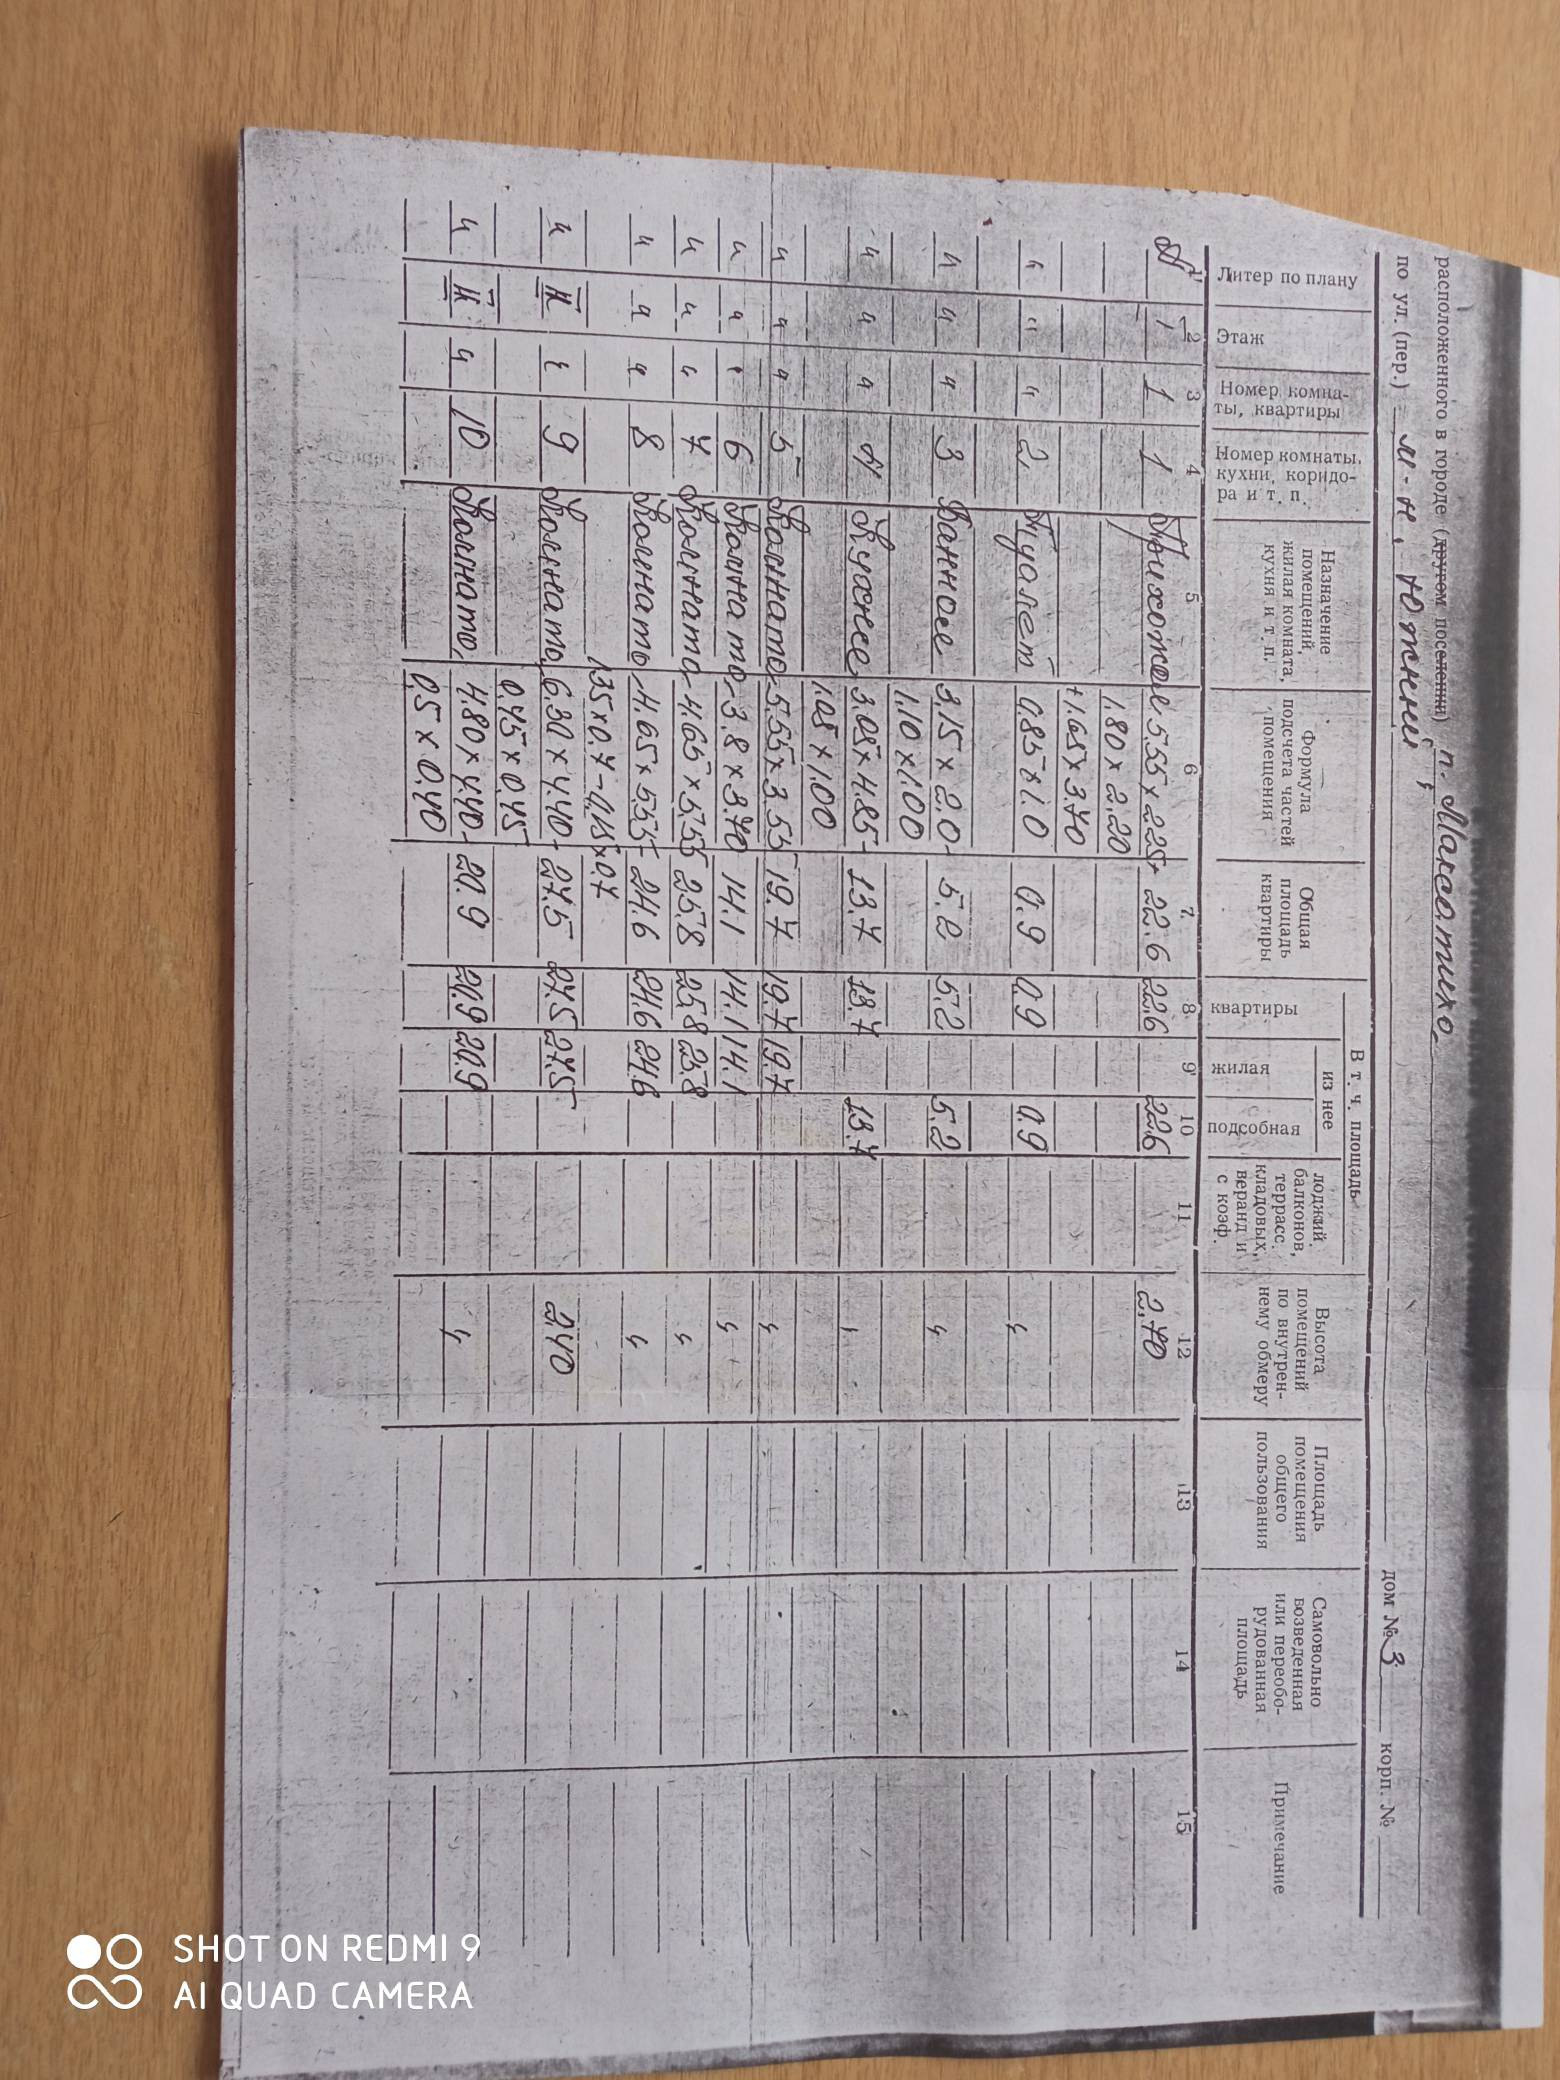 расположенного в городе (другом поселении) п. Максатиха
по ул. (пер.) м-н. Южный дом № 3 корп. №
Литер по плану
Этаж
Номер комна-
ты, квартиры
Номер комнаты,
кухни, коридо-
ра и т. п.
Назначение
помещений,
жилая комната,
кухня и т. п.
Формула
подсчета частей
помещения
Общая
площадь
квартиры
В т. ч. площадь
квартиры
из нее
жилая
подсобная
лоджий,
балконов,
террасс.
кладовых,
веранд и
с коэф.
Высота
помещений
по внутрен-
нему обмеру
Площадь
помещения
общего
пользования
Самовольно
возведенная
или переобо-
рудованная
площадь
Примечание
1 2 3 4 5 6 7 8 9 10 11 12 13 14 15
А 1 1 1 Прихожая 5.55 x 2.25+ 22.6 22.6 22.6 2.70
1.80 x 2.20
+1.65 x 3.70
" " " 2 Туалет 0.85 x 1.0 0.9 0.9 0.9 "
" " " 3 Ванная 3.15 x 2.0- 5.2 5.2 5.2 "
1.10 x 1.00
" " " 4 Кухня 3.05 x 4.85- 13.7 13.7 13.7 "
1.05 x 1.00
" " " 5 Комната 5.55 x 3.55 19.7 19.7 19.7 "
" " " 6 Комната 3.8 x 3.70 14.1 14.1 14.1 "
" " " 7 Комната 4.65 x 5.55 25.8 25.8 25.8 "
" " " 8 Комната 4.65 x 5.55- 24.6 24.6 24.6 "
1.35 x 0.7 - 0.45 x 0.7
" " 9 Комната 6.30 x 4.40- 27.5 27.5 27.5 2.40
0.45 x 0.45
" " 10 Комната 4.80 x 4.40- 20.9 20.9 20.9 "
0.5 x 0.40
SHOT ON REDMI 9
AI QUAD CAMERA